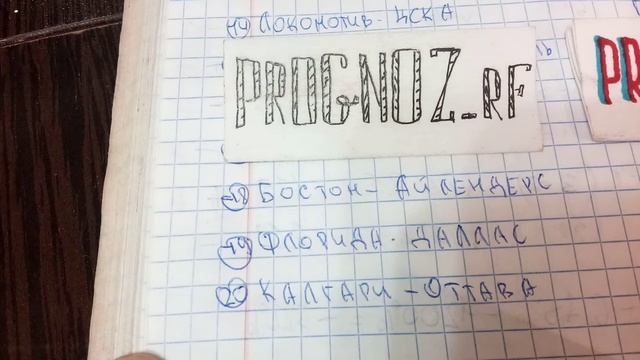 Локомотив - ЦСКА
PROGNOZ_RF
PR
18 БОСТОН - АЙЛЕНДЕРС
19 ФЛОРИДА - ДАЛЛАС
20 КАЛГАРИ - ОТТАВА